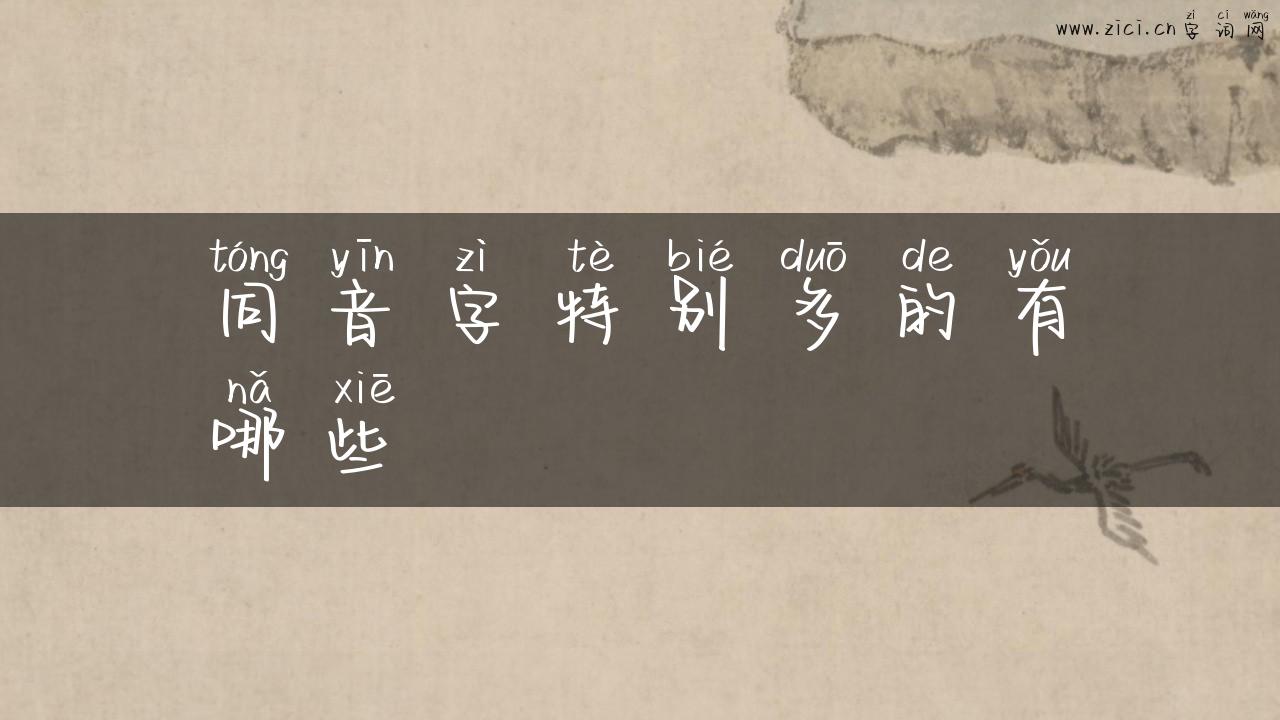 zì cí wǎng
www.zici.cn 字词网
tóng yīn zì tè bié duō de yǒu
同音字特别多的有
nǎ xiē
哪些